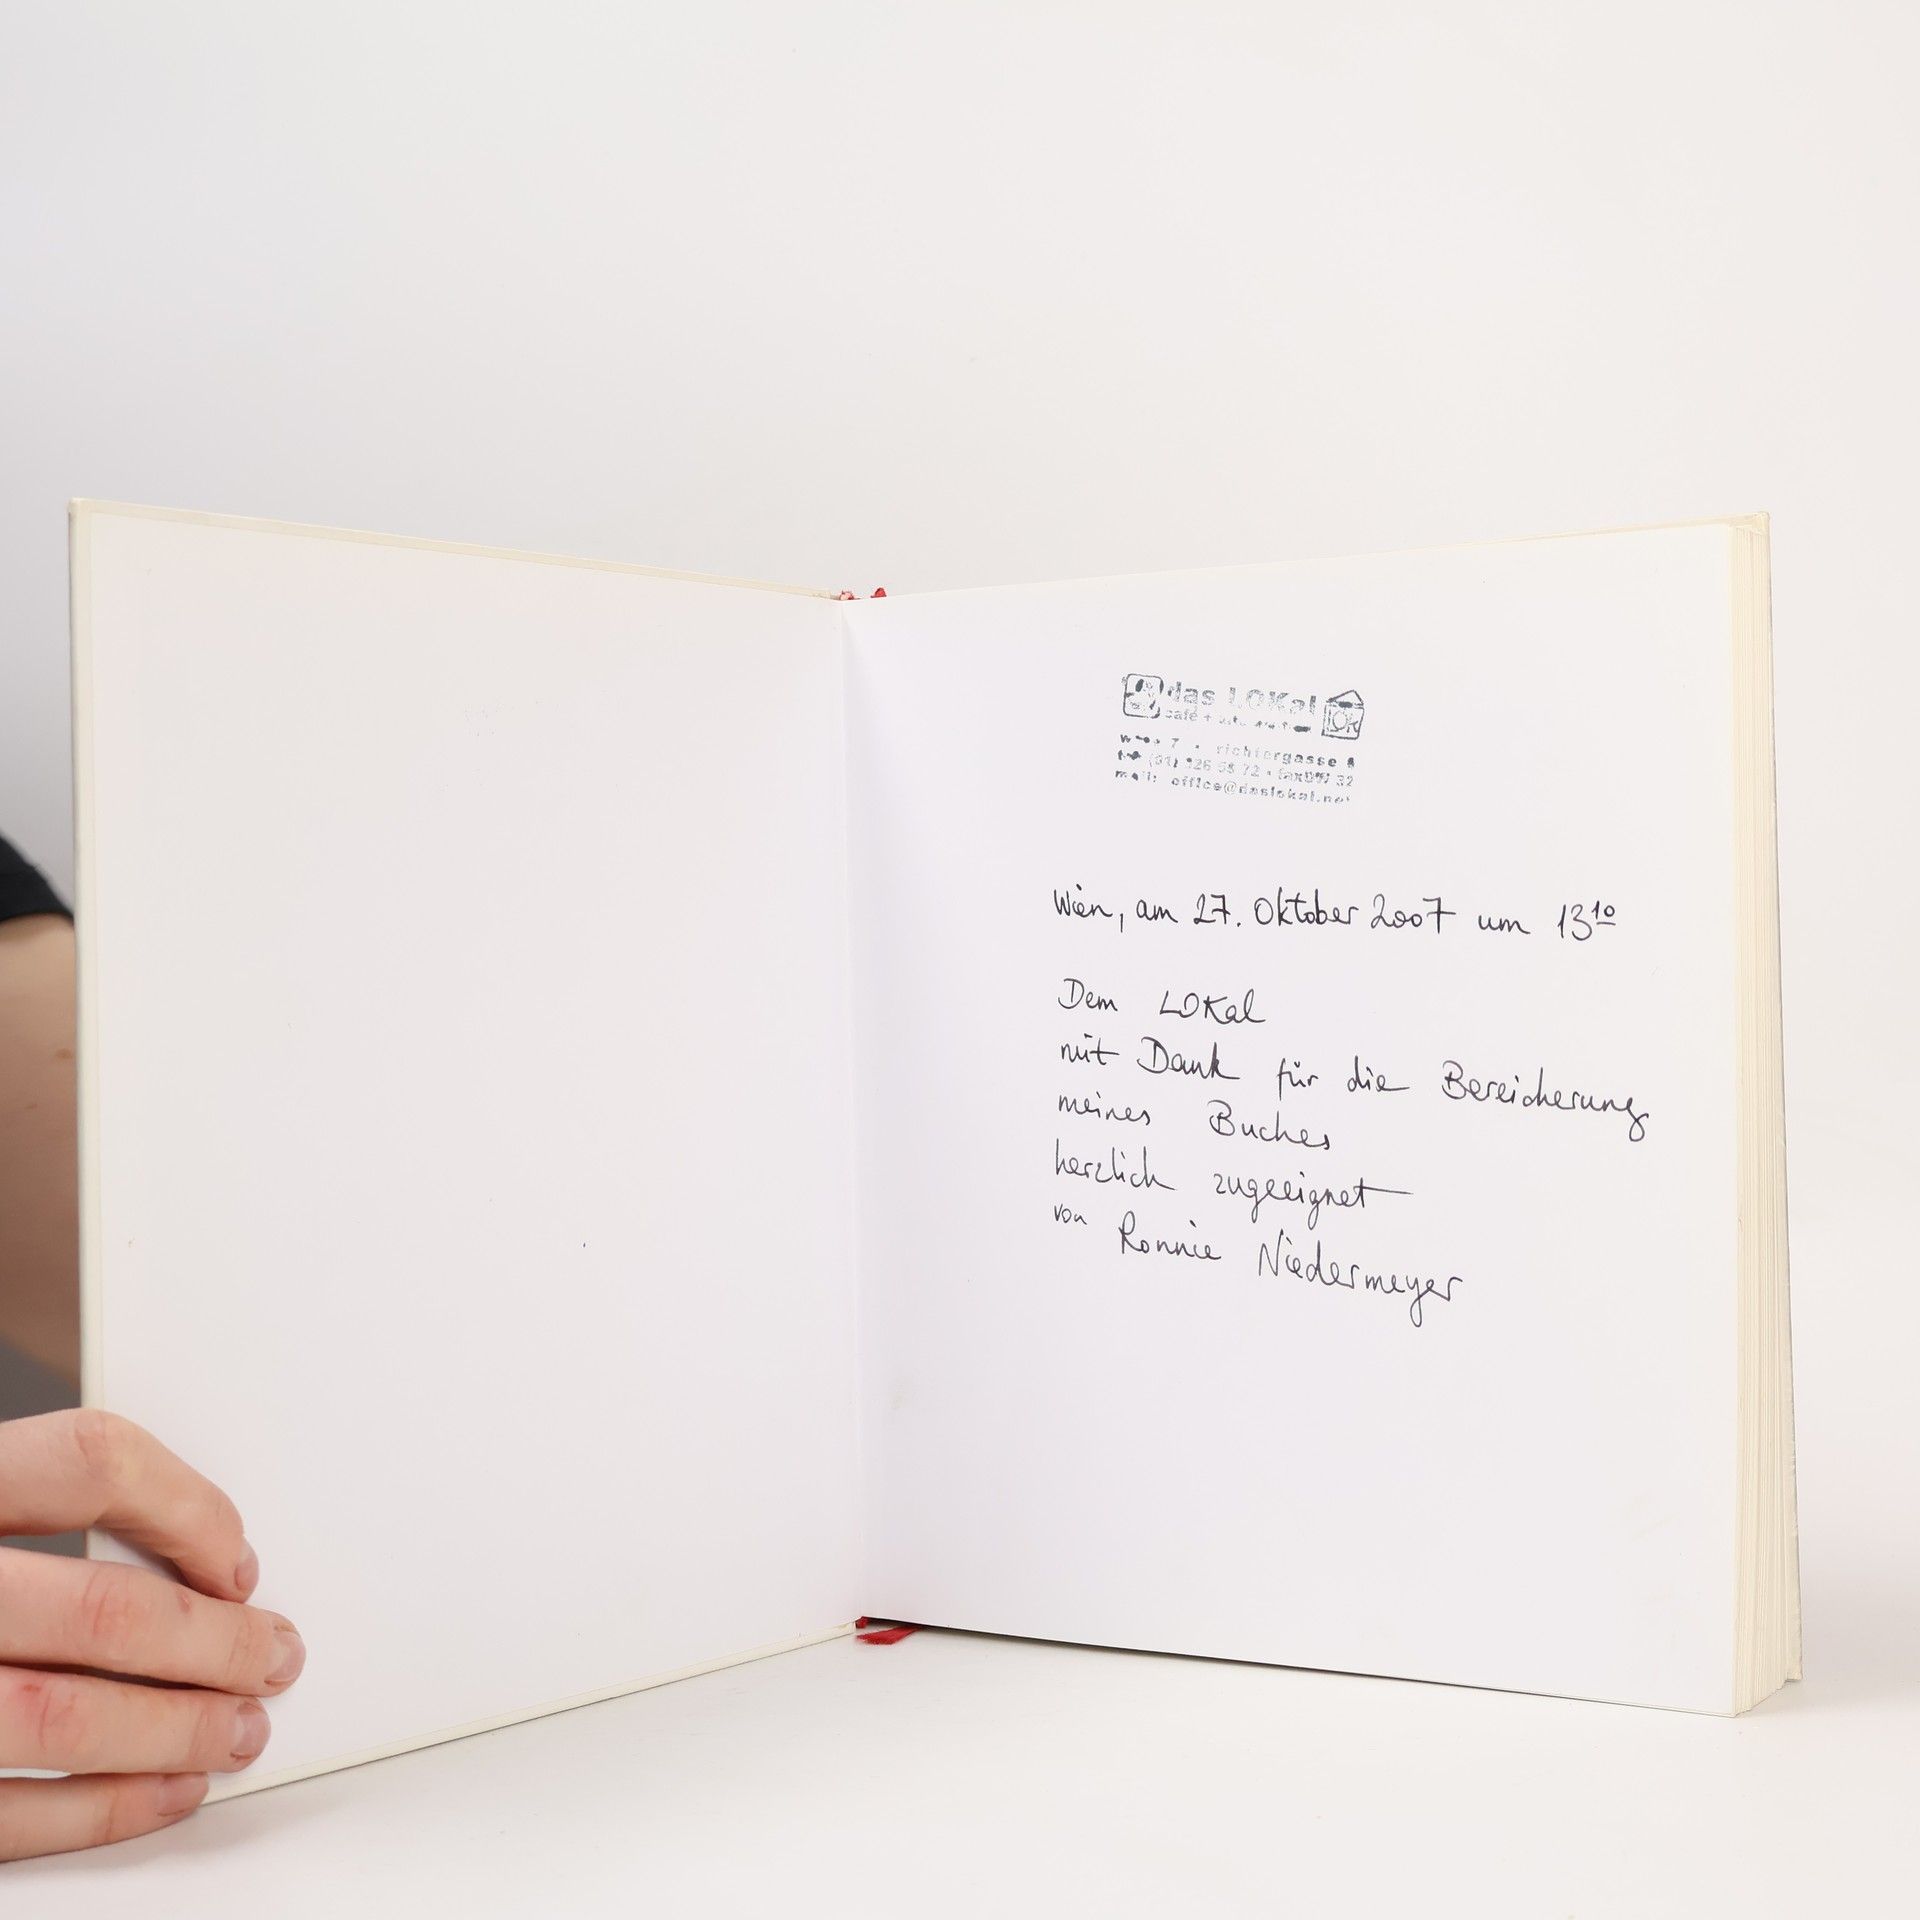 das LOKal
café +
LOK
richtergasse 6
mail: office@daslokal.net
Wien, am 27. Oktober 2007 um 13¹⁰
Dem LOKal
mit Dank für die Bereicherung
meines Buches
herzlich zugeeignet
von Ronnie Niedermeyer